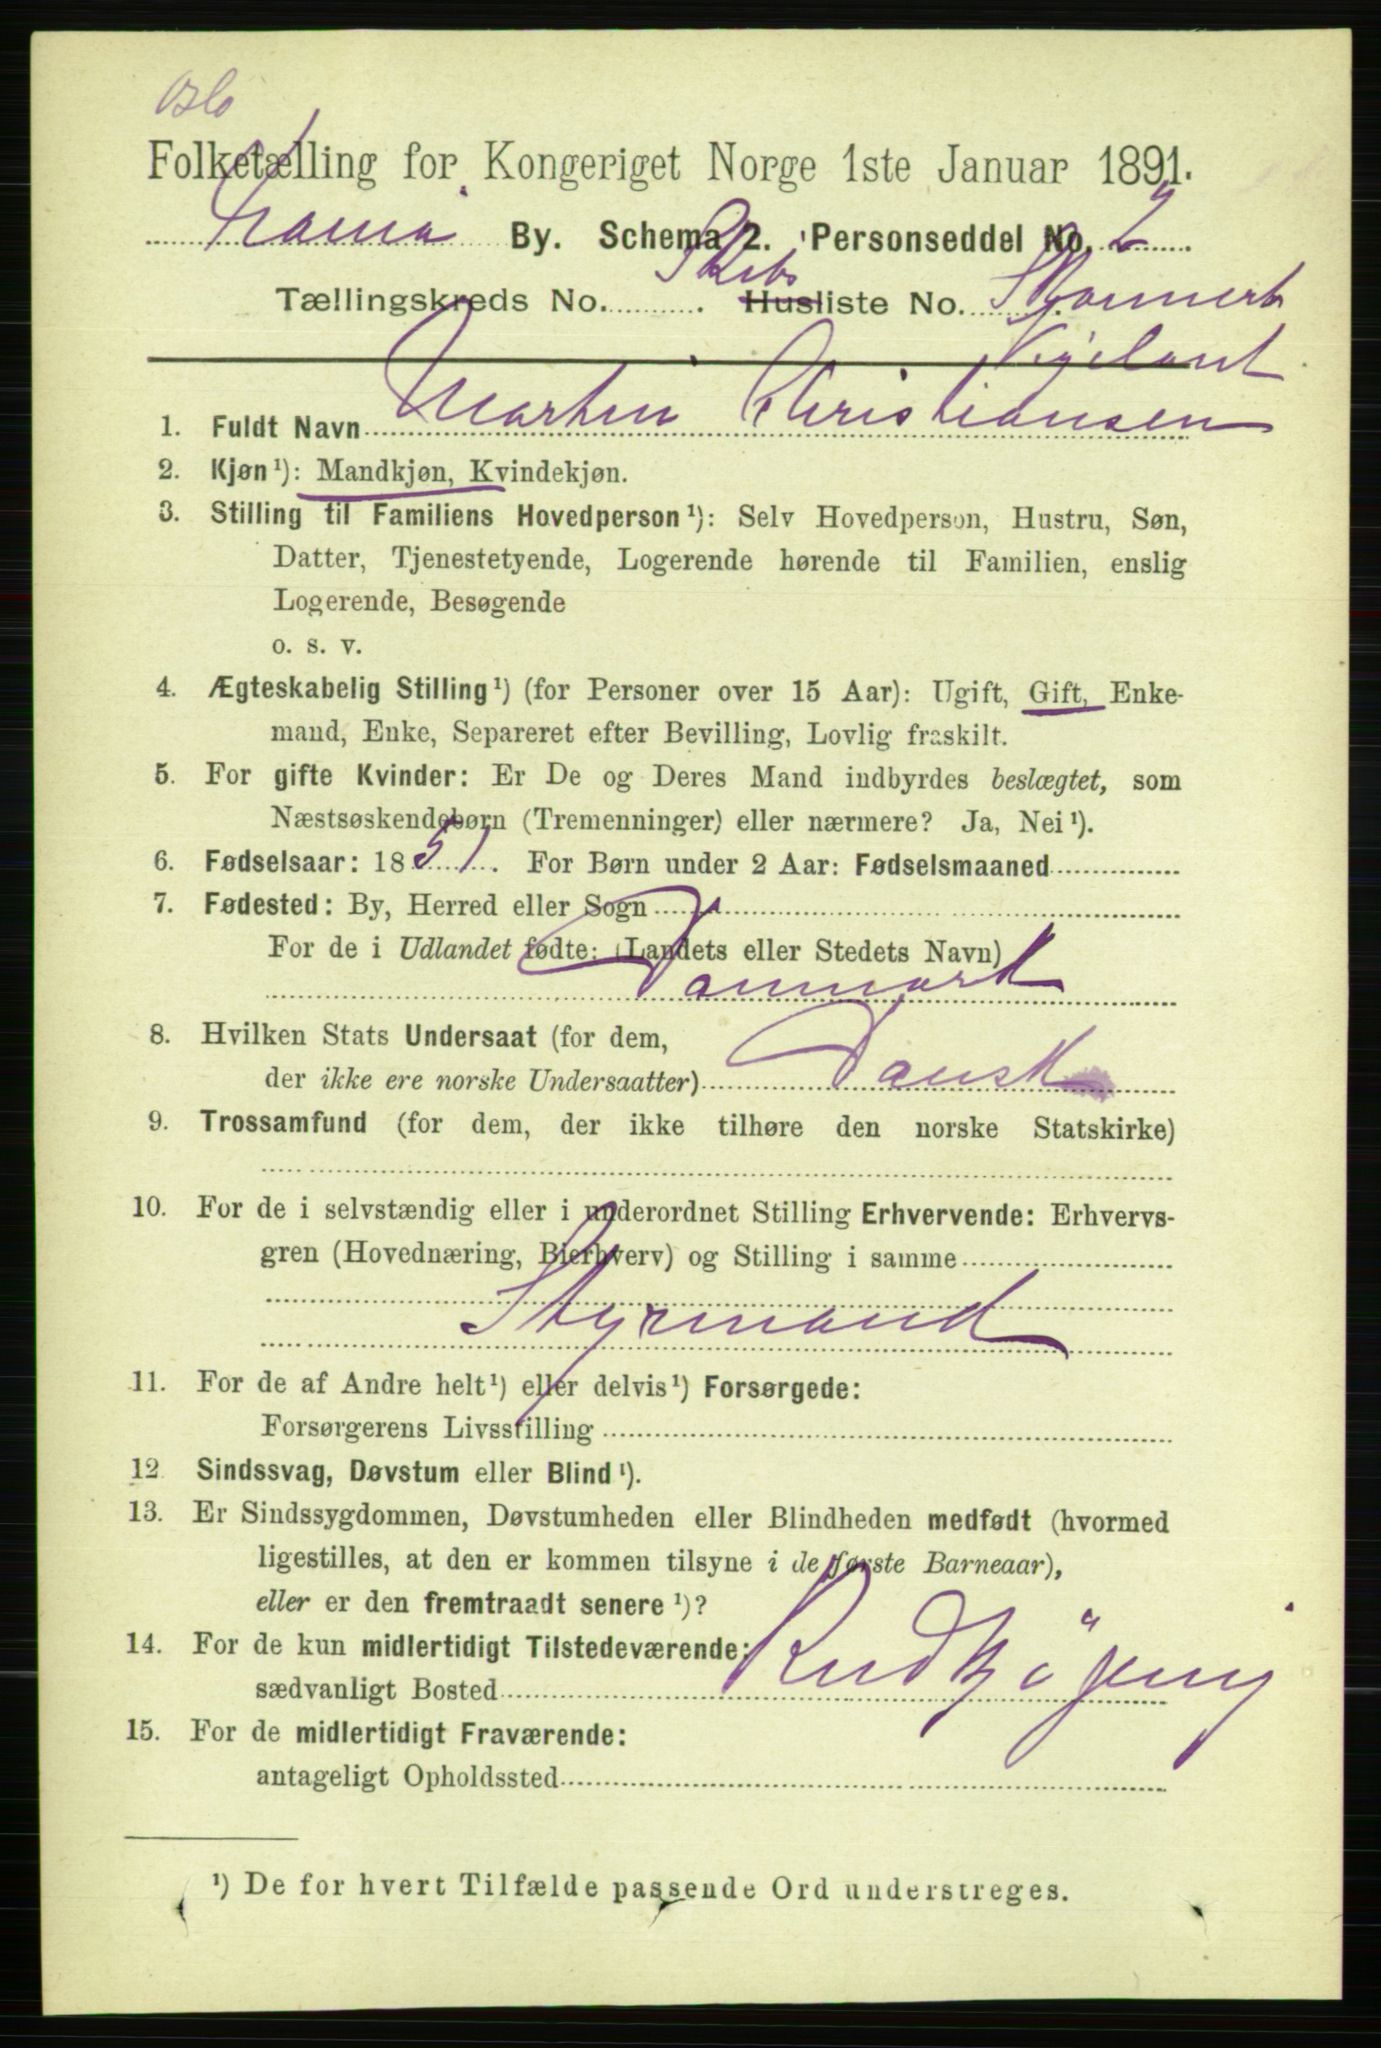 Oslo
Folketælling for Kongeriget Norge 1ste Januar 1891.
By. Schema 2. Personseddel No. 2
Tællingskreds No. ........ . Skibs Husliste No.
Vigilant
1. Fuldt Navn Martin Christiansen
2. Kjøn ¹): Mandkjøn, Kvindekjøn.
3. Stilling til Familiens Hovedperson ¹): Selv Hovedperson, Hustru, Søn,
Datter, Tjenestetyende, Logerende hørende til Familien, enslig
Logerende, Besøgende
o. s. v.
4. Ægteskabelig Stilling ¹) (for Personer over 15 Aar): Ugift, Gift, Enke-
mand, Enke, Separeret efter Bevilling, Lovlig fraskilt.
5. For gifte Kvinder: Er De og Deres Mand indbyrdes beslægtet, som
Næstsøskendebørn (Tremenninger) eller nærmere? Ja, Nei ¹).
6. Fødselsaar: 1851. For Børn under 2 Aar: Fødselsmaaned
7. Fødested: By, Herred eller Sogn
For de i Udlandet fødte: (Landets eller Stedets Navn)
Danmark
8. Hvilken Stats Undersaat (for dem,
der ikke ere norske Undersaatter) Dansk
9. Trossamfund (for dem, der ikke tilhøre den norske Statskirke)
10. For de i selvstændig eller i underordnet Stilling Erhvervende: Erhvervs-
gren (Hovednæring, Bierhverv) og Stilling i samme
Styrmand
11. For de af Andre helt ¹) eller delvis ¹) Forsørgede:
Forsørgerens Livsstilling
12 Sindssvag, Døvstum eller Blind ¹).
13. Er Sindssygdommen, Døvstumheden eller Blindheden medfødt (hvormed
ligestilles, at den er kommen tilsyne i de første Barneaar),
eller er den fremtraadt senere ¹)?
14. For de kun midlertidigt Tilstedeværende:
sædvanligt Bosted Rudkjöping
15. For de midlertidigt Fraværende:
antageligt Opholdssted
¹) De for hvert Tilfælde passende Ord understreges.